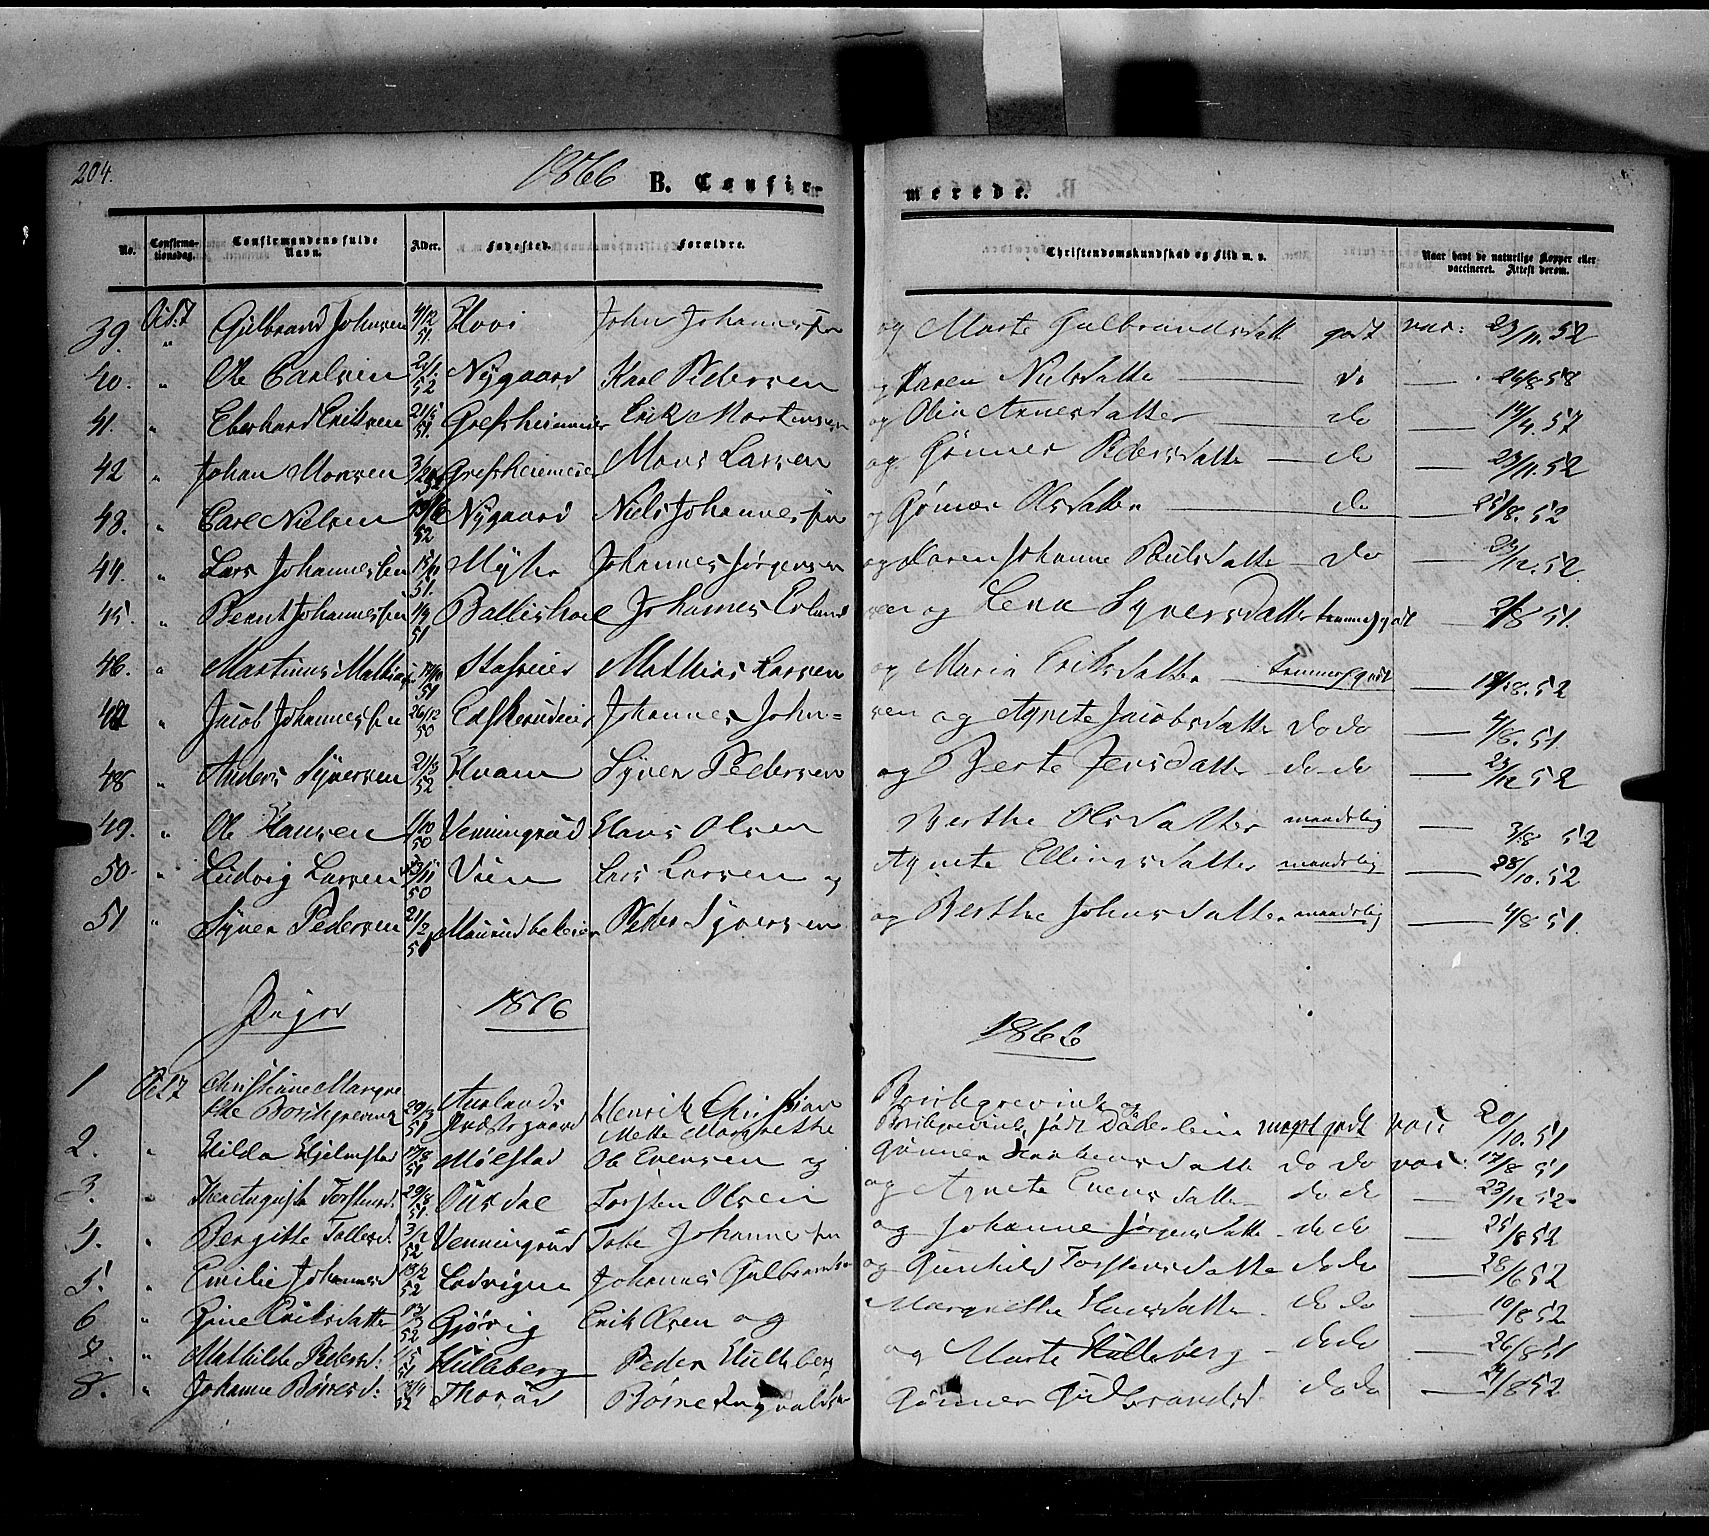 204.
1866 B. Confir- merede.
No. Confirma-tionsdag. Confirmandens fulde Navn. Alder. Fødested. Forældre. Christendomskundskab og Flid m. v. Naar havt de naturlige Kopper eller vaccineret. Attest derom.
39. Oct. 7 Gulbrand Johnsen 4/12 51. Hovi John Johannessen og Marte Gulbrandsdatt godt vac: 23/11. 52
40. " Ole Carlsen 52 Nygaard Karl Pedersen og Karen Nielsdatte — do — 26/8 58
41. " Eberhard Eriksen 21/5 51. Grefsheimeier Erik Mortensen og Olia Arnesdatter — do — 14/4. 57
42 " Johan Monsen 3/2 52 Grefsheimeier Mons Larsen og Gønner Pedersdatte — do — 23/11. 52
43. " Carl Nielsen 52 Nygaard Niels Johannessen og Gønner Olsdatter — do — 25/8. 52
44. " Lars Johannessen 51. Myhr Johannes Jørgensen og Karen Johanne Poulsdatte — do — 23/12. 52.
45. " Bernt Johannessen 51 Ballishoel Johannes Erland sen og Lena Syversdatter temmel godt — 2/8 51.
46. " Martinus Mathias 51 Stafseier Mathias Larsen og Maria Eriksdatter — temmel godt — 18/8. 52
47 Jacob Johannessen 26/12 50 Johannes John= sen og Agnete Jacobsdatte do do — 4/6. 51.
48 " Anders Syversen 52 Hvam Syver Pedersen og Berte Jensdatte do do — 23/12 52
49. " Ole Hansen 1/10 50 Venningrud Hans Olsen Berthe Olsdatter maadelig — 3/8 52
50. " Ludvig Larsen 50 Vien Lars Larsen og Agnete Ellingsdatter maadelig — 28/10. 52
51 " Syver Pedersen 21/2 51 Peder Syversen og Berthe Johnsdatter maadelig — 4/8 51.
Piger 1866 1866
1 Oct 7 Christiane Margre
the Borchgrevink 29/3 51 Aurlands Præstegaard Henrik Christian Borchgrevink og
Mette Margrethe Borchgrevink født Døderlein meget godt vac: 20/10. 51
2. " Hilda Hjelmstad 17/8 51 Mølstad Ole Evensen og Gønner do do vac: 17/8 51
3. " Torstensd. 29/8 51 Torsten Olsen og Agnete Evensdatte do do — 23/12 52
4. " Bergitte Tollesd. 3/2 52 Venningrud Tolle Johannessen og Johanne Jørgensdatte do do — 25/8 52
5. " Emilie Johannesd 13/2 52 Ladvigne Johannes Gulbrandsen og Gunhild Torstensdatte do do — 28/6 52
6 " Gine Eriksdatter 52 Gjøvig Erik Olsen og Margrethe Hansdatte do do — 10/8 52
7. " Mathilde Pedersd. 51 Hulleberg Peder Hulleberg og Marte Hulleberg do do — 26/8 51
8. " Johanne Børresd. 52 Thorud Børre Ingvaldsen Gønner Gudbrandsd do do — 8 52